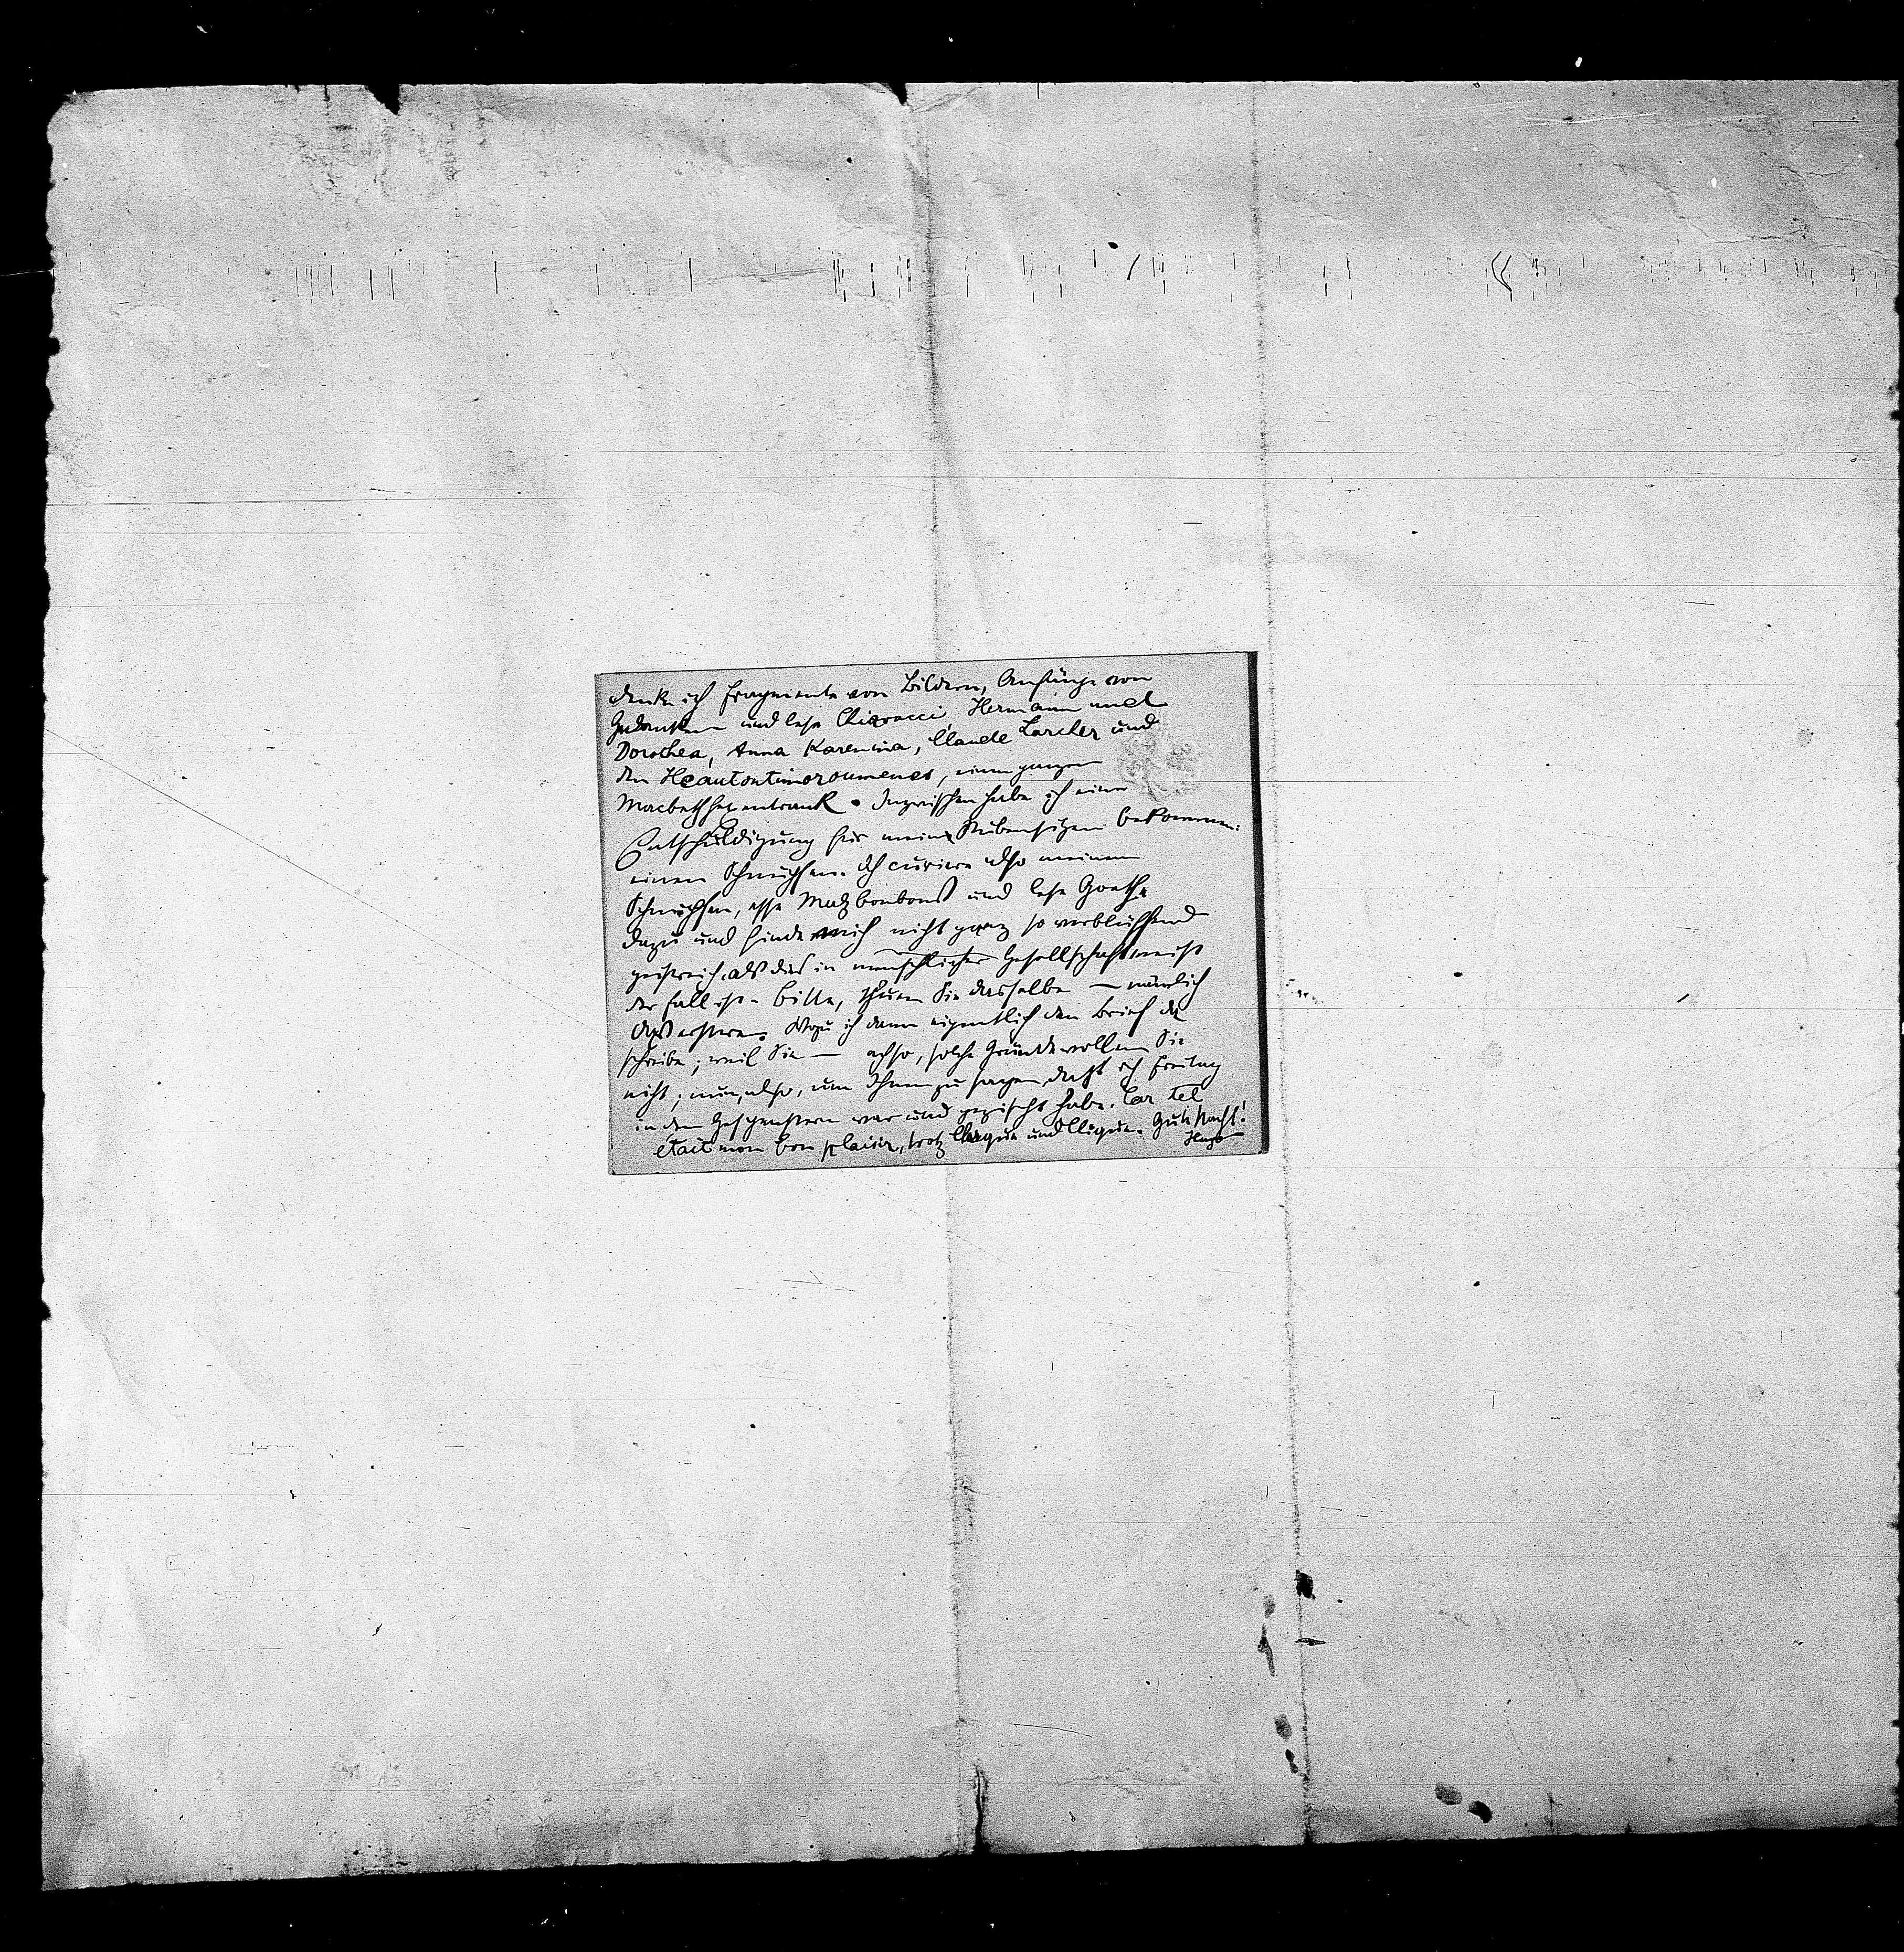 denke ich Fragmente von Bildern, Anfänge von
Gedanken und lese Chiavacci, Hermann und
Dorothea, Anna Karenina, Claude Larcher und
den Heautontimoroumenos, einen ganzen
Macbethhexentrank. Inzwischen habe ich eine
Entschuldigung für mein Stubensitzen bekommen:
einen Schnupfen. Ich curiere also meinen
Schnupfen, esse Malzbonbons und lese Goethe
dazu und finde mich nicht ganz so verblüffend
geistreich als dies in menschlicher Gesellschaft meist
der Fall ist. Bitte, thuen Sie dasselbe – nämlich
das erstere. Wozu ich dann eigentlich den Brief da
schreibe; weil Sie – ach so, solche Gründe wollen Sie
nicht; nun, also, um Ihnen zu sagen, daß ich Freitag
in den Gespenstern war und gezischt habe. Car tel
était mon bon plaisir, trotz Claque und Clique. Gute Nacht!
Hugo